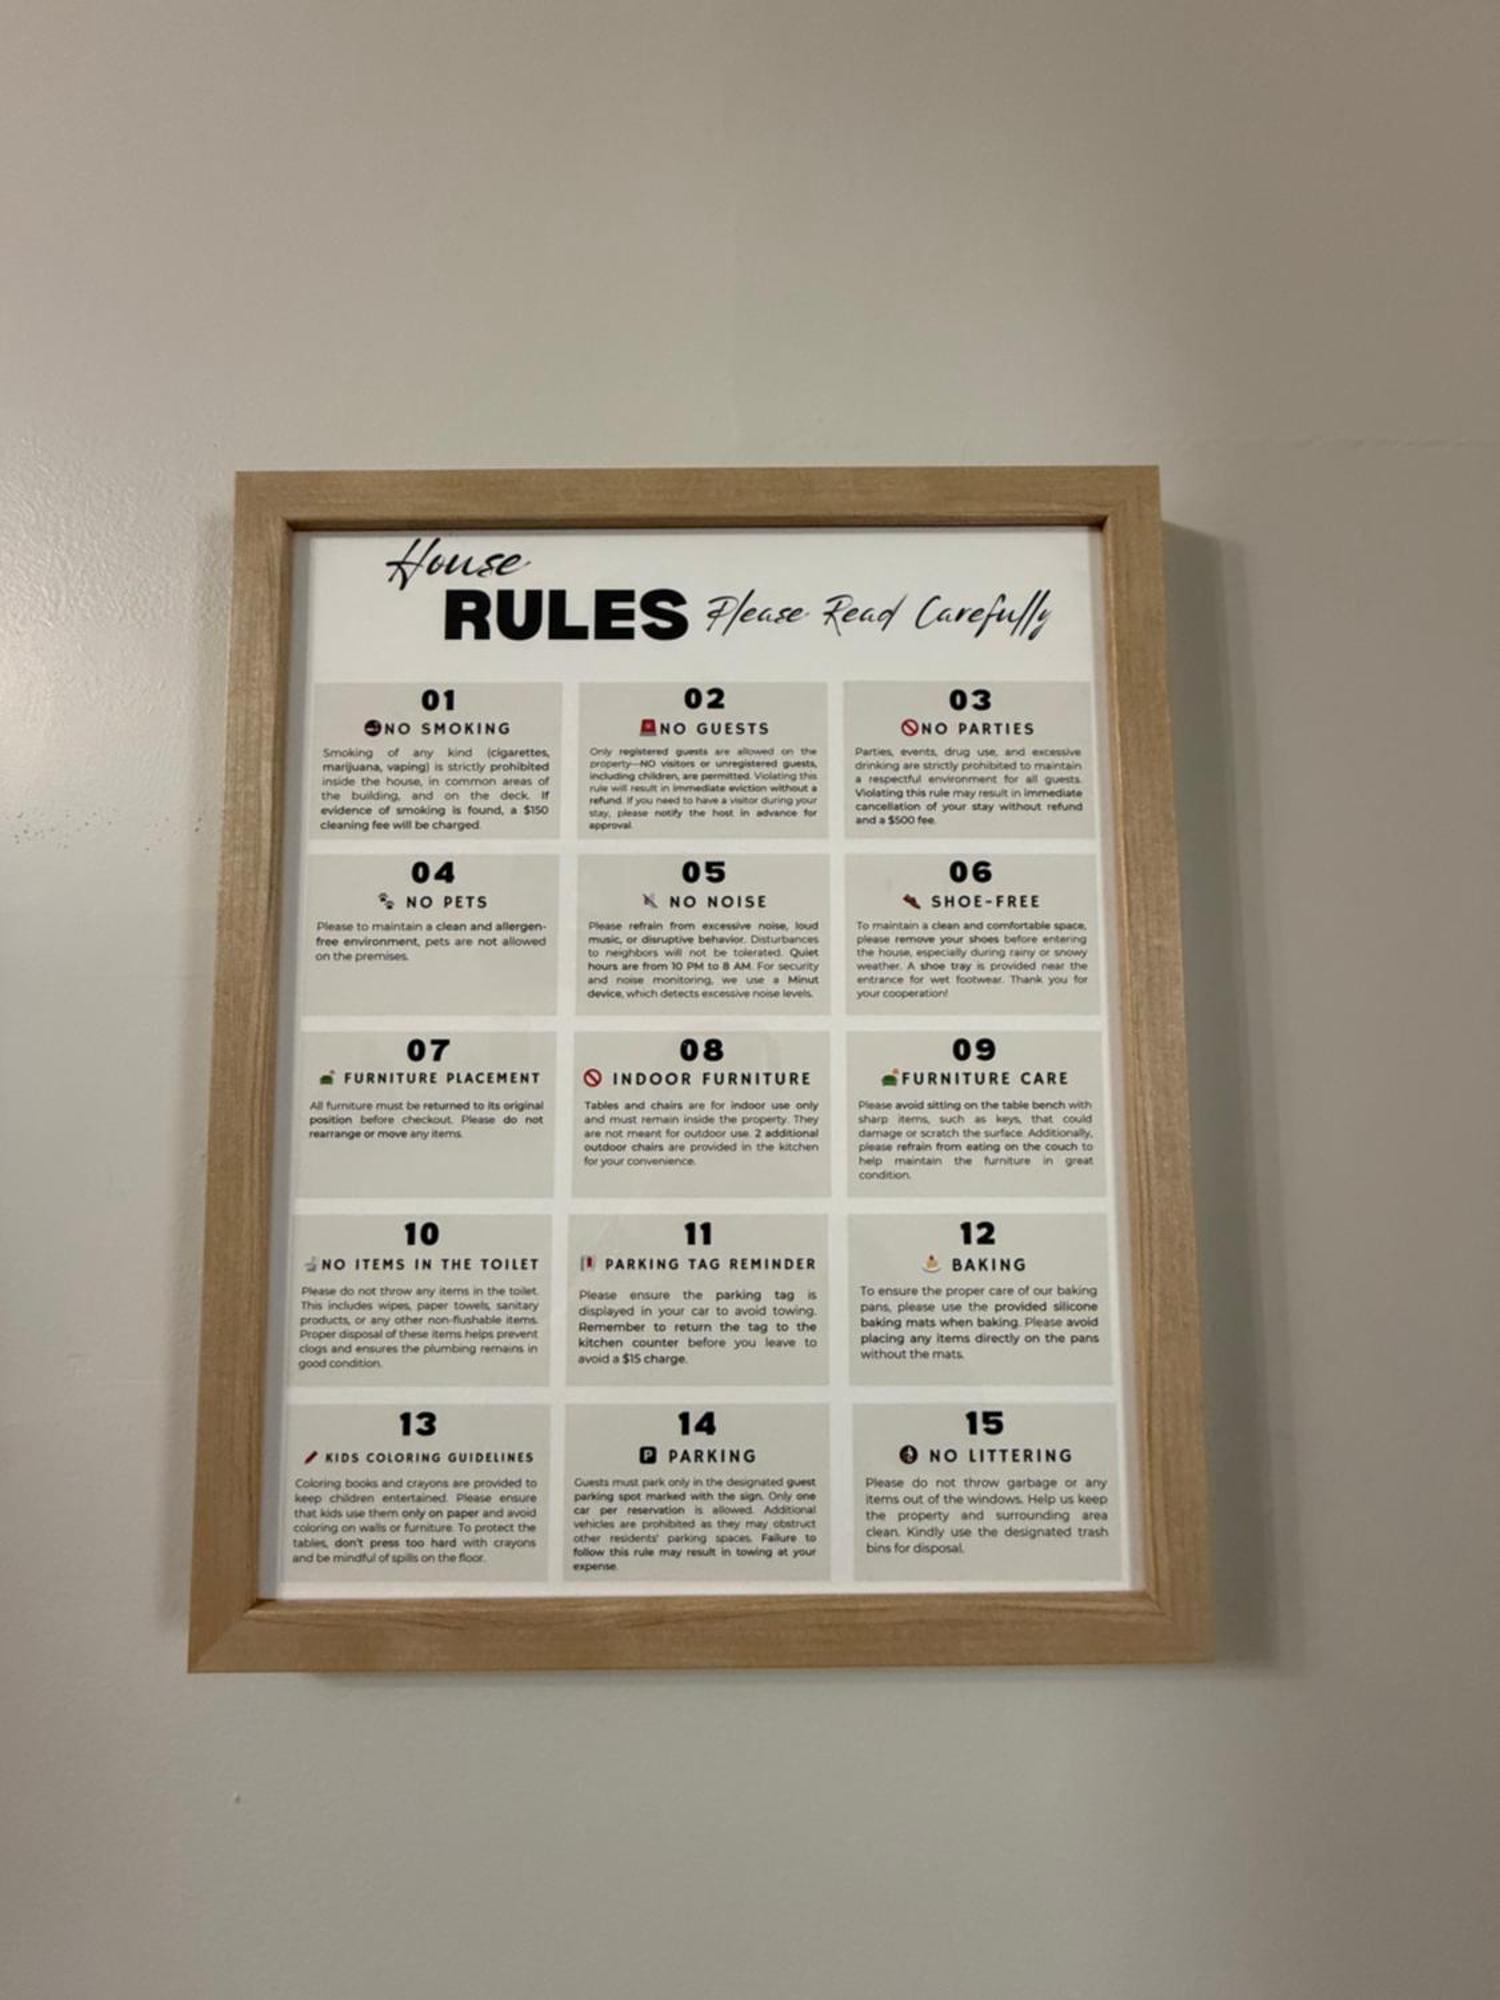 House
RULES Please Read Carefully
01
NO SMOKING
Smoking of any kind (cigarettes,
marijuana, vaping) is strictly prohibited
inside the house, in common areas of
the building, and on the deck. If
evidence of smoking is found, a $150
cleaning fee will be charged.
02
NO GUESTS
Only registered guests are allowed on the
property—NO visitors or unregistered guests,
including children, are permitted. Violating this
rule will result in immediate eviction without a
refund. If you need to have a visitor during your
stay, please notify the host in advance for
approval.
03
NO PARTIES
Parties, events, drug use, and excessive
drinking are strictly prohibited to maintain
a respectful environment for all guests.
Violating this rule may result in immediate
cancellation of your stay without refund
and a $500 fee.
04
NO PETS
Please to maintain a clean and allergen-
free environment, pets are not allowed
on the premises.
05
NO NOISE
Please refrain from excessive noise, loud
music, or disruptive behavior. Disturbances
to neighbors will not be tolerated. Quiet
hours are from 10 PM to 8 AM. For security
and noise monitoring, we use a Minut
device, which detects excessive noise levels.
06
SHOE-FREE
To maintain a clean and comfortable space,
please remove your shoes before entering
the house, especially during rainy or snowy
weather. A shoe tray is provided near the
entrance for wet footwear. Thank you for
your cooperation!
07
FURNITURE PLACEMENT
All furniture must be returned to its original
position before checkout. Please do not
rearrange or move any items.
08
INDOOR FURNITURE
Tables and chairs are for indoor use only
and must remain inside the property. They
are not meant for outdoor use. 2 additional
outdoor chairs are provided in the kitchen
for your convenience.
09
FURNITURE CARE
Please avoid sitting on the table bench with
sharp items, such as keys, that could
damage or scratch the surface. Additionally,
please refrain from eating on the couch to
help maintain the furniture in great
condition.
10
NO ITEMS IN THE TOILET
Please do not throw any items in the toilet.
This includes wipes, paper towels, sanitary
products, or any other non-flushable items.
Proper disposal of these items helps prevent
clogs and ensures the plumbing remains in
good condition.
11
PARKING TAG REMINDER
Please ensure the parking tag is
displayed in your car to avoid towing.
Remember to return the tag to the
kitchen counter before you leave to
avoid a $15 charge.
12
BAKING
To ensure the proper care of our baking
pans, please use the provided silicone
baking mats when baking. Please avoid
placing any items directly on the pans
without the mats.
13
KIDS COLORING GUIDELINES
Coloring books and crayons are provided to
keep children entertained. Please ensure
that kids use them only on paper and avoid
coloring on walls or furniture. To protect the
tables, don't press too hard with crayons
and be mindful of spills on the floor.
14
P PARKING
Guests must park only in the designated guest
parking spot marked with the sign. Only one
car per reservation is allowed. Additional
vehicles are prohibited as they may obstruct
other residents' parking spaces. Failure to
follow this rule may result in towing at your
expense.
15
NO LITTERING
Please do not throw garbage or any
items out of the windows. Help us keep
the property and surrounding area
clean. Kindly use the designated trash
bins for disposal.